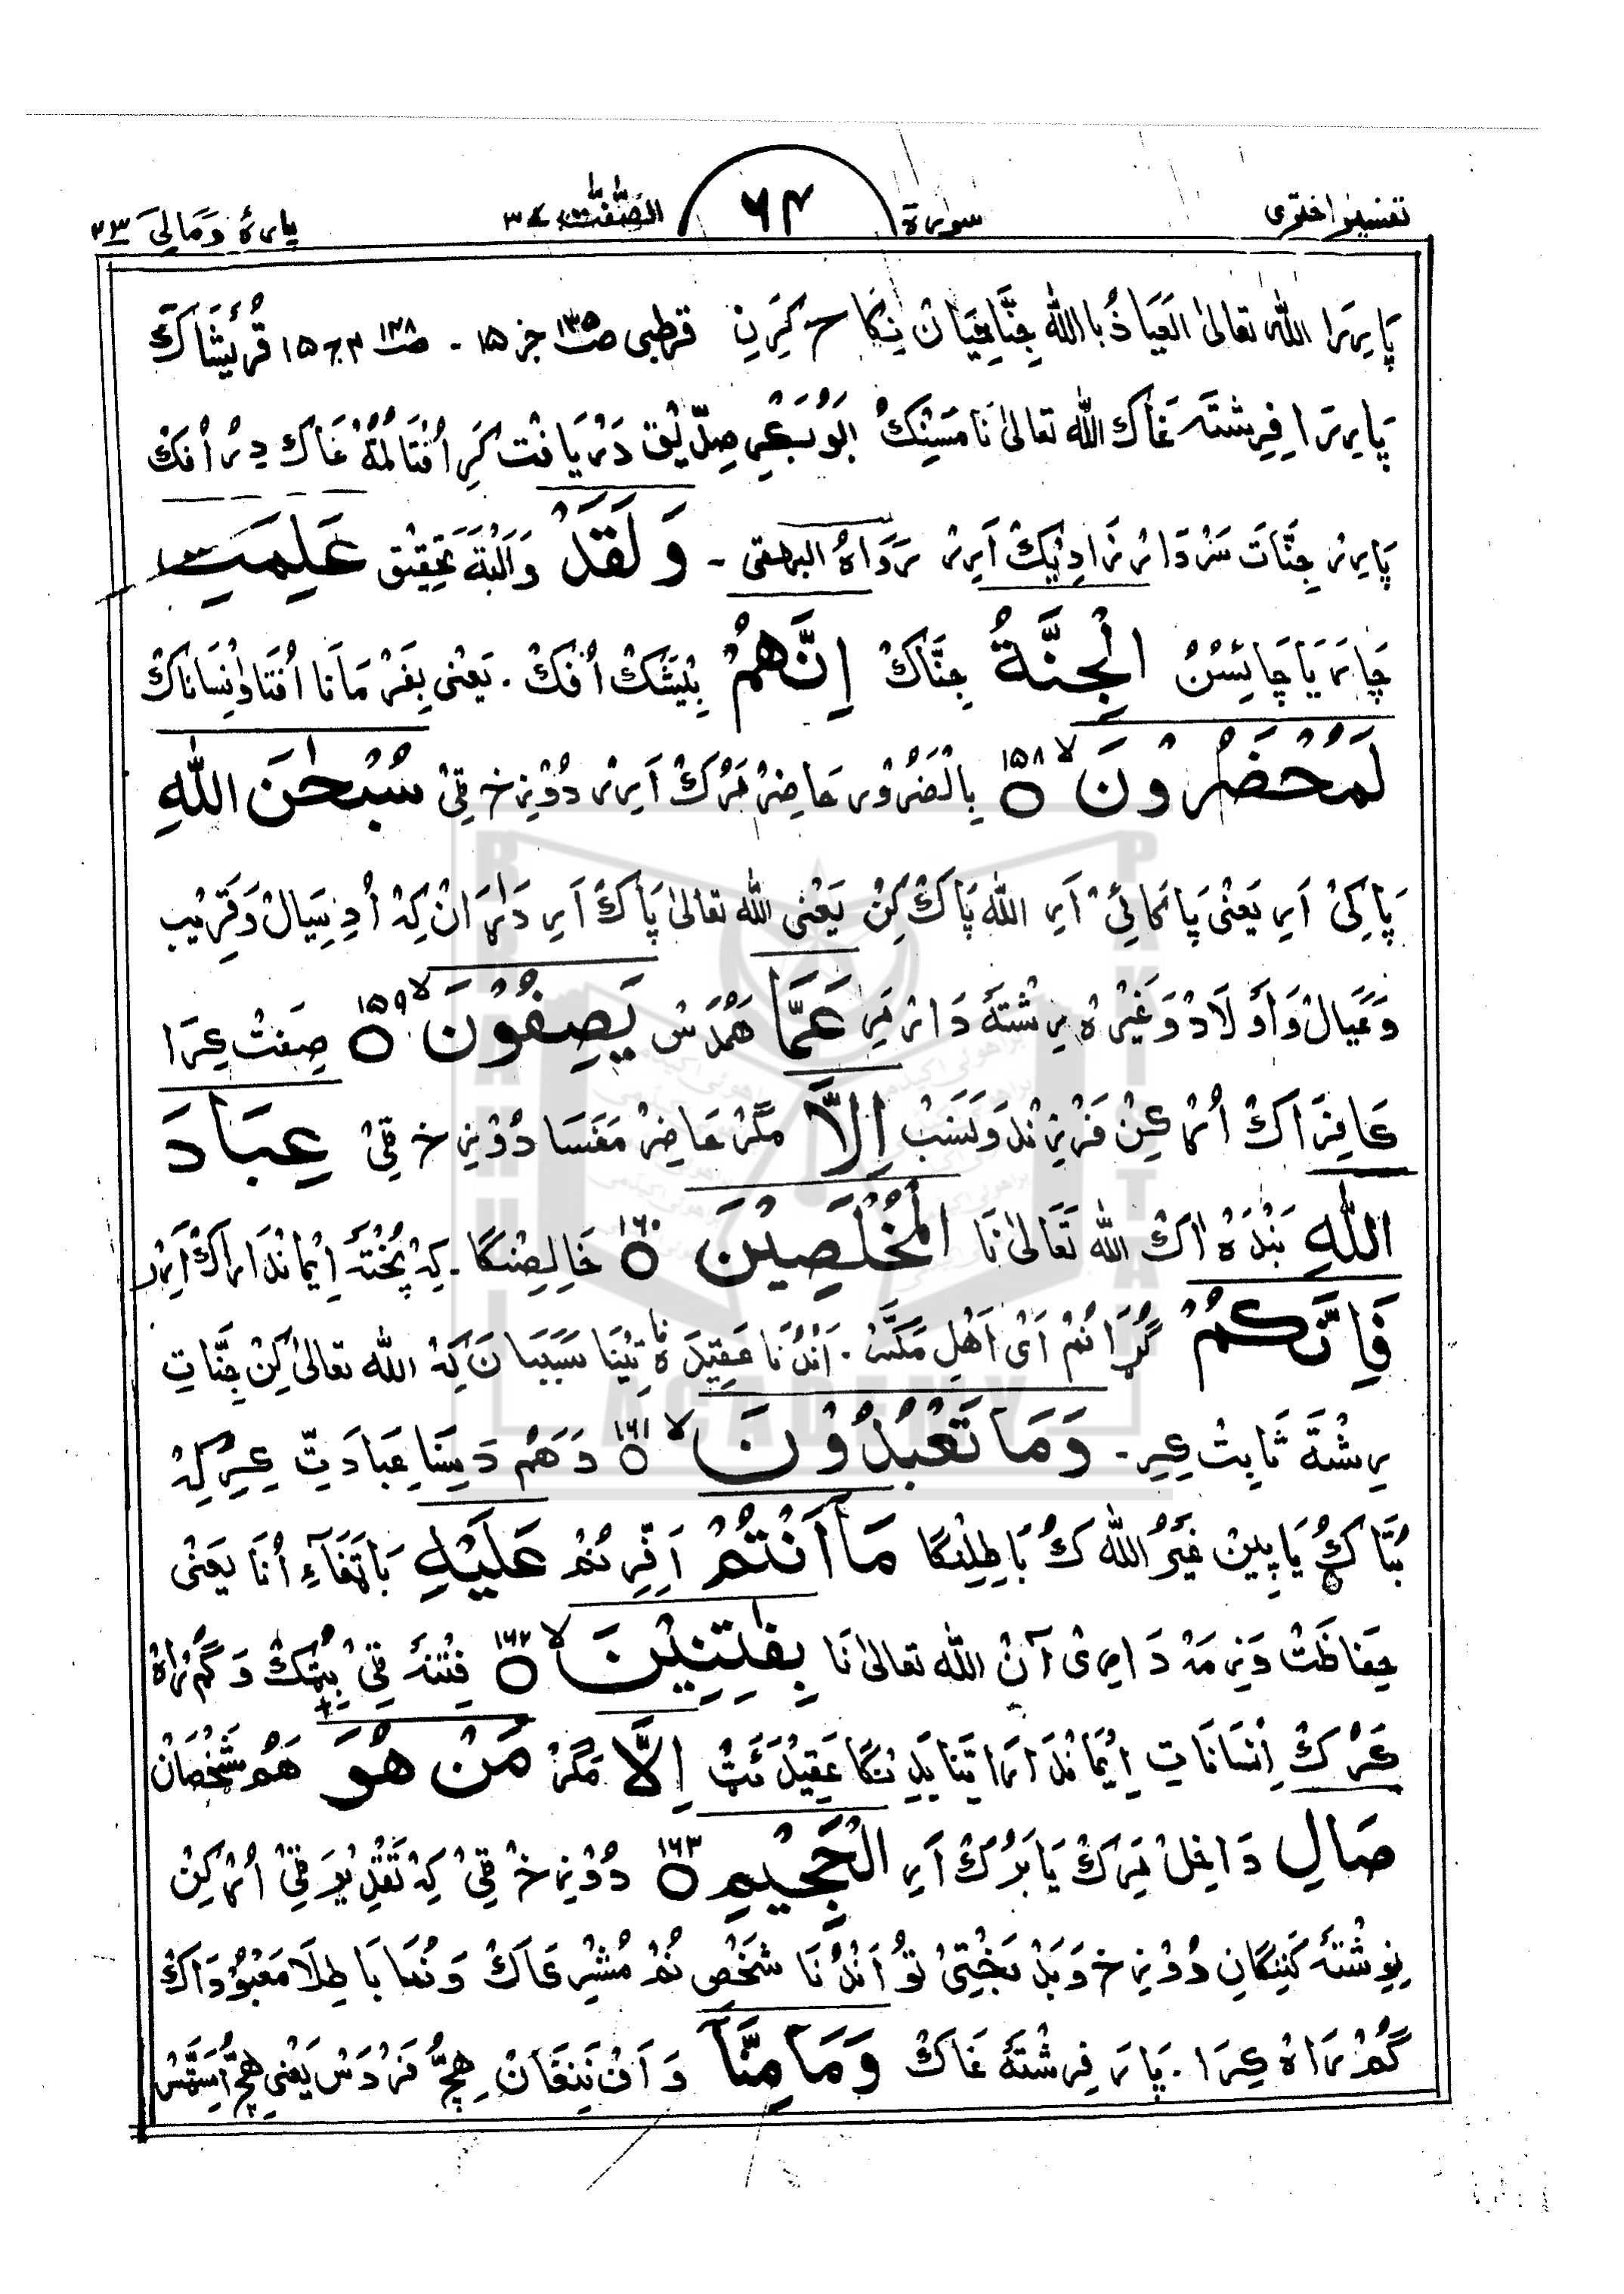 تفسیر اختری سورة ۶۴ الصّٰفّٰت ۳۷ پارهٔ وَمَالِیَ ۲۳
پَارِیرَا اللّٰه تعالیٰ العَیَاذُ باالله جِنَّاتِیَان نِکَاح کَرِنِ قرطبی ص۱۳۵ جز ۱۵ - ص۱۳۸ ج۴ ۱۵ قُرَیْشَاکَ
پَارِیرَا فِرِشتَه غَاک الله تعالیٰ نَا مَسِنْکُ اَبُوبَکْرِ صِدِّیْق دَرْیَافْت کَرِ اُفتَا لُمَّه غَاک دِیر اُفکْ
پَارِیر جِنَّات سَرْدَار نَزادِیْک اَرِیر رَوَاهُ البیهقی - وَلَقَدْ وَالْبَتَّه تَحقِیْق عَلِمَتِ
چَارَیَا چَائِسُنُ الْجِنَّةُ جِنَّاکْ اِنَّهُمْ بِیْشَکْ اُفکْ . یَعْنی بِفَرْمَانَا اُفتَا وَاِنْسَانَاکْ
لَمُحْضَرُوْنَ ۝۱۵۸ لا بِالضَّرُوْر حَاضِرْ مَرُکْ اَرِیر دُوْزَخ قِیْ سُبْحٰنَ اللّٰهِ
پَاکِیْ اَرِ یَعْنی پَاکَائِیْ اَرِ اللّٰه پَاک کِنْ یَعْنی الله تعالیٰ پَاک اَرِ دَارَان کِه اُدِ سِیَالْ وَقَرِیْب
وَعِیَالْ وَاَوْلَادْ وَغَیْرَه رِشْتَه دَار مَرِ عَمَّا هَمُدَسْ یَصِفُوْنَ ۝۱۵۹ لا صِفَتْ کِرَا
کَافِرَاکْ اُرْکِنْ فَرْزَنْد وَنَسَبْ اِلَّا مَگَر حَاضِرْ مَفَسَا دُوْزَخ قِیْ عِبَادَ
اللّٰهِ بَنْدَه اَکْ اللّٰه تَعَالیٰ نَا الْمُخْلَصِیْنَ ۝۱۶۰ خَالِصَنْگَا . کِه پُخْتَه اِیْمَانْدَارَاکْ اَرِیر
فَاِنَّکُمْ گُڑَا نُم اَیْ اَهْلِ مَکَّه . اَنْدُنَا عَقِیْدَه تِیْنَا سَبَبَان کِه الله تعالیٰ کِنْ جِنَّاتِ
رِشْتَه ثَابِتْ کِرِ - وَمَا تَعْبُدُوْنَ ۝۱۶۱ لا وَهَم دَیْسِنَا عِبَادَتْ کِرِ کِه
بُتَّاکُ یَاپِیْن غَیْرُ اللّٰه کُ بَاطِلِنْگَا مَاۤ اَنْتُمْ اَفِّرِ نُم عَلَیْهِ بَاتِفَآءِ اُنَا یَعْنی
حِفَاظَتْ وَذِمَه دَارِیْ آن اللّٰه تعالیٰ نَا بِفٰتِنِیْنَ ۝۱۶۲ لا فِتْنَه قِیْ بِتُکْ وَگُمْرَاهْ
کَرْکْ اِنْسَانَاتِ اِیْمَانْدَارَا تِنَا پَلِیتَنْگَا عَقِیْدَتْ اِلَّا مَگَرْ مَنْ هُوَ هَمُ شَخْصَانْ
صَالِ دَاخِلْ مَرِکْ یَا بَرُکْ اَرِ الْجَحِیْمِ ۝۱۶۳ دُوْزَخْ قِیْ کِه تَقْدِیْرَ قِیْ اُرْکِنْ
نِوِشْتَه کَنِنْگَانِ دُوْزَخ وَبَدْ بَخْتِیْ تُو اَنْدُنَا شَخْص نُم مُشْرِکَاکْ وَنُمَا بَاطِلَا مَعْبُوْدَاکْ
گُمْرَاهْ کِرَا . پَارَ فِرِشْتَه غَاکْ وَمَا مِنَّاۤ وَاَف نَنِقَانْ هِچُّ فَرْدَسْ یَعْنی هِچُّ اَسِّتَسْ